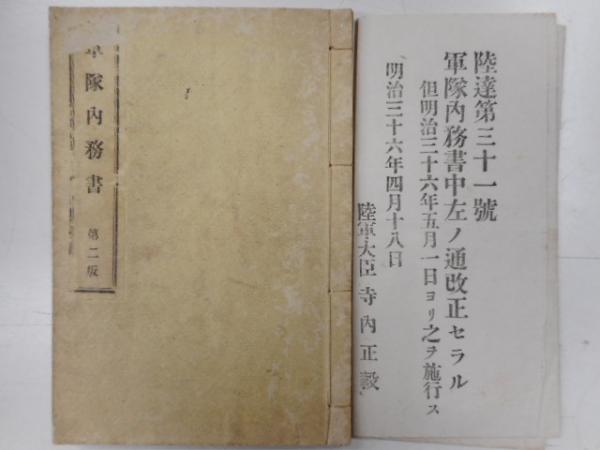 軍隊內務書
第二版
陸達第三十一號
軍隊內務書中左ノ通改正セラル
但明治三十六年五月一日ヨリ之ヲ施行ス
明治三十六年四月十八日
陸軍大臣 寺內正毅